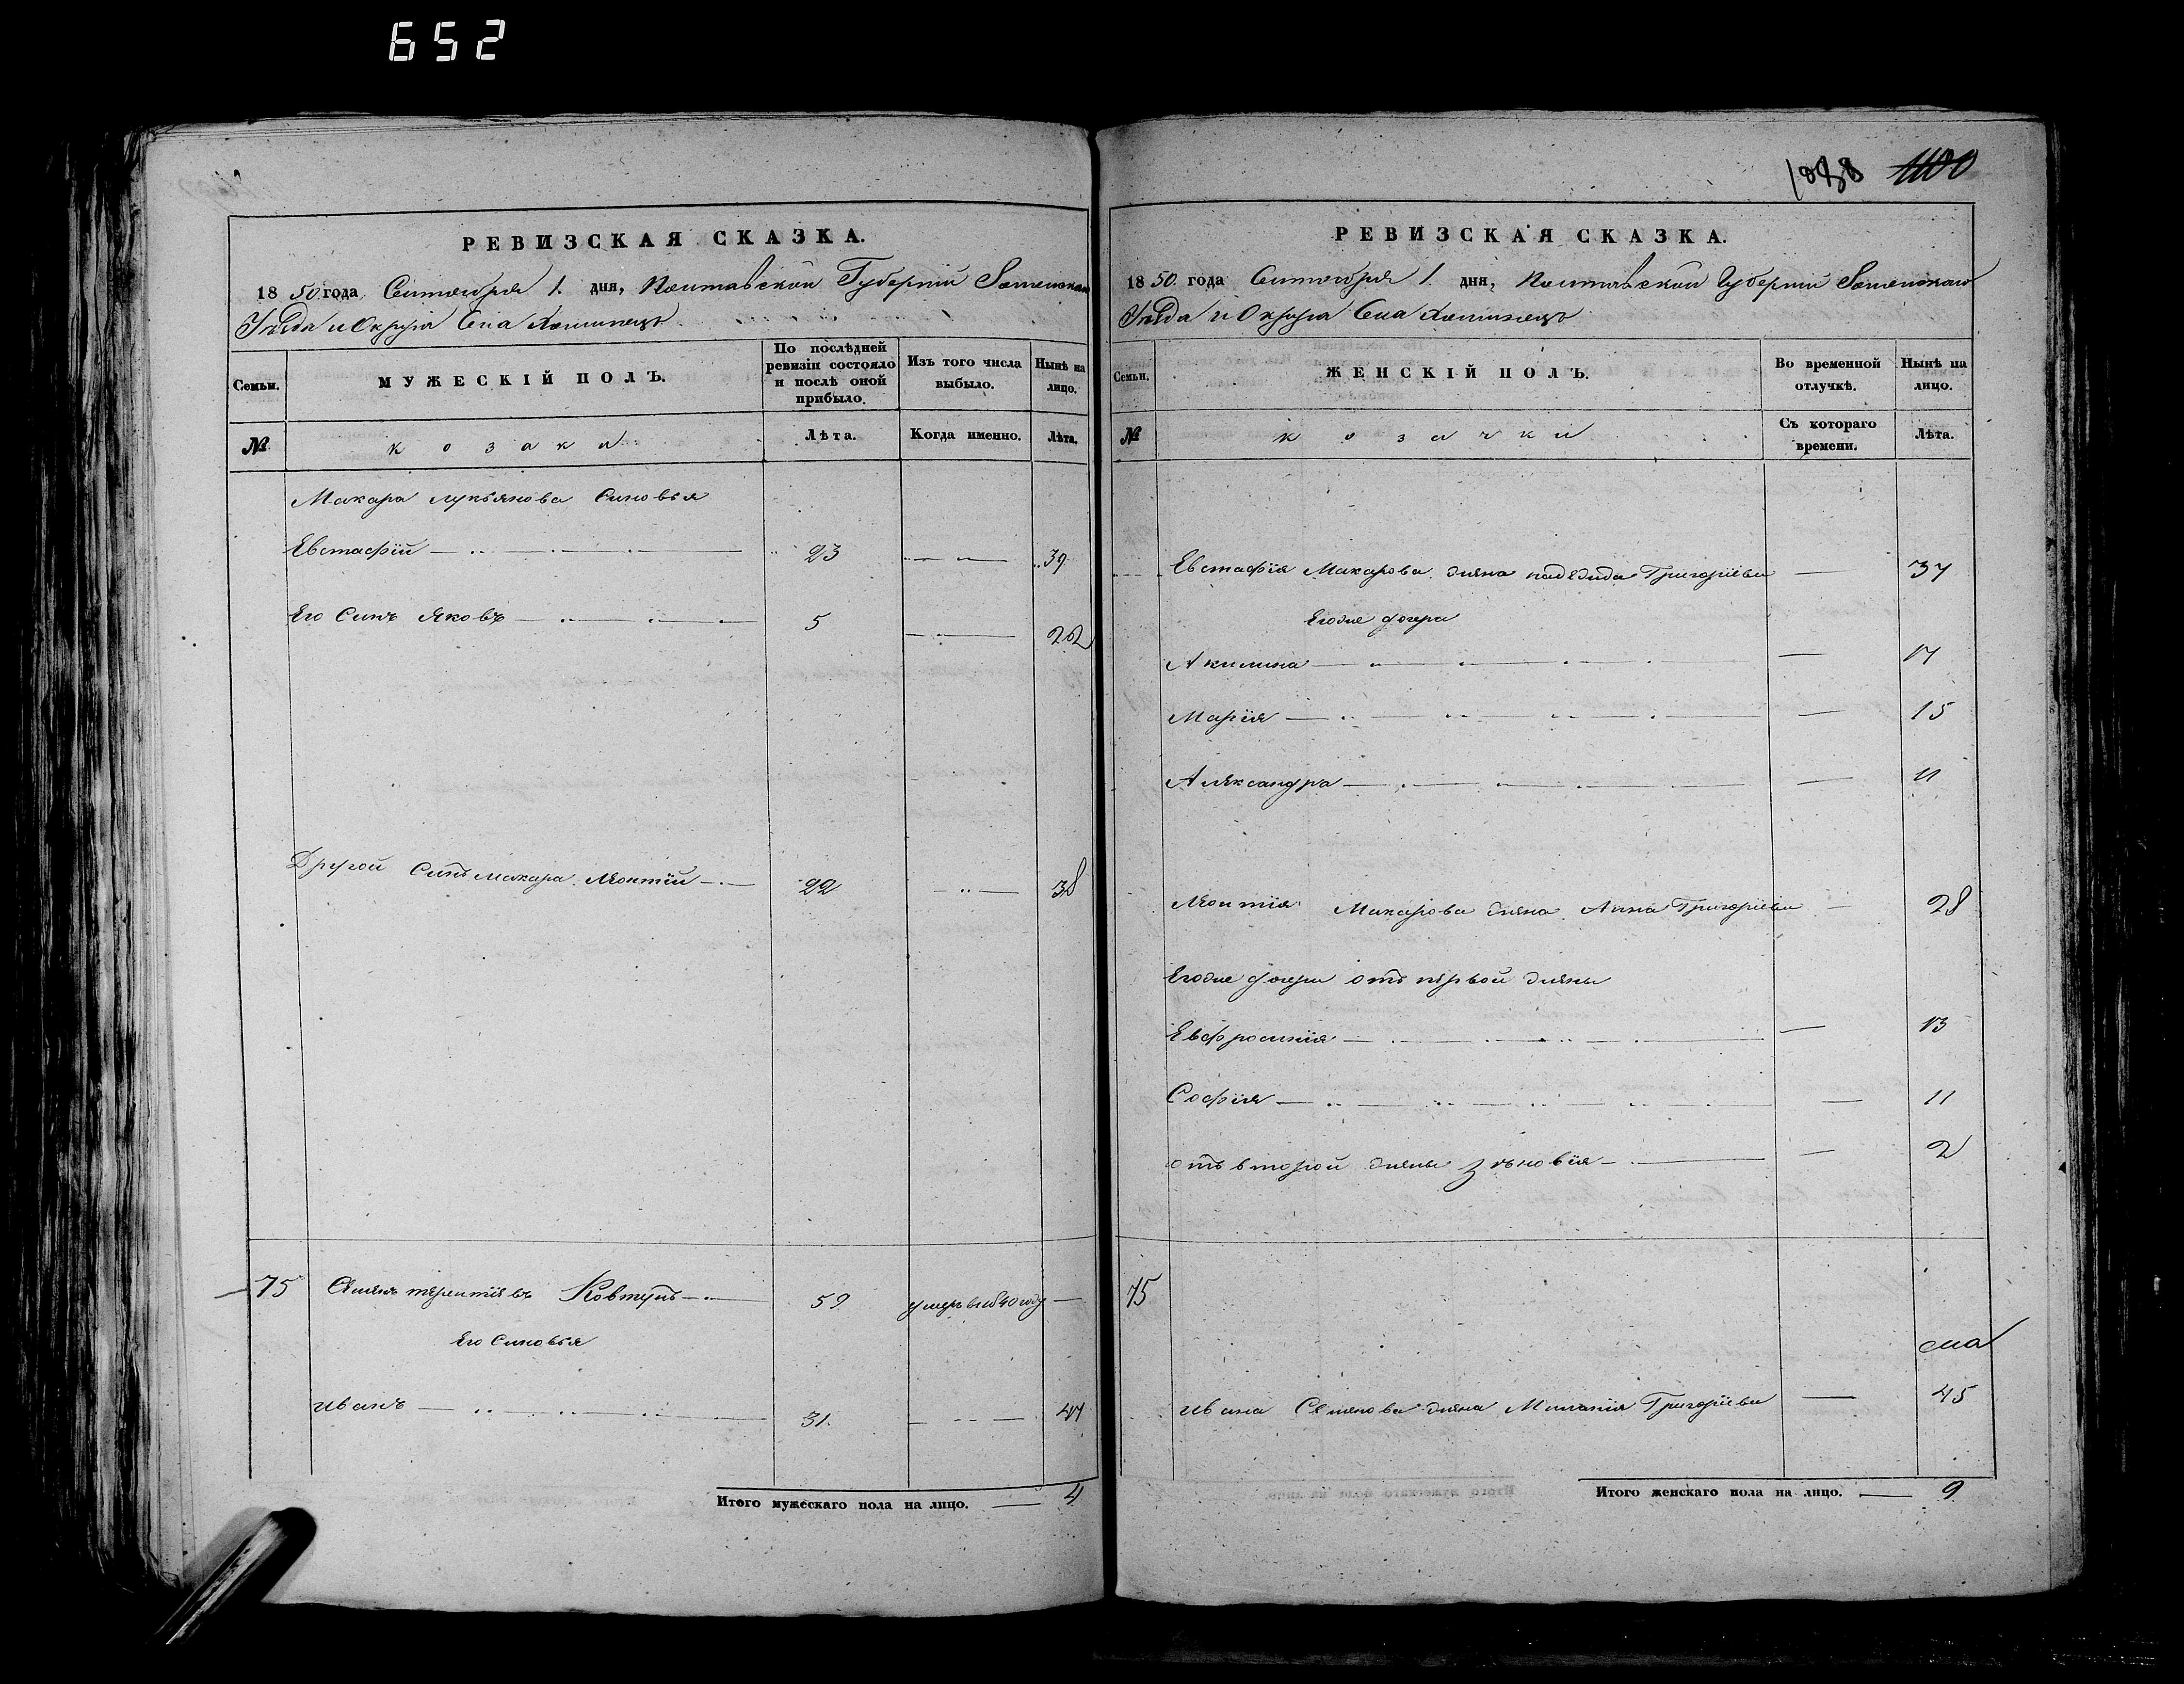 652
1088 1100
РЕВИЗСКАЯ СКАЗКА.
1850 года Сентября 1. дня, Полтавской Губерніи
Уѣзда и Округа Села
Семьи. МУЖЕСКІЙ ПОЛЪ. По послѣдней ревизіи состояло и послѣ оной прибыло. Изъ того числа выбыло. Нынѣ на лицо.
№ козаки Лѣта. Когда именно. Лѣта.
Макара Лукьянова Синовья
Евстафій 23 39
Его Синъ Яковъ 5 22
Другой Синъ Макара Леонтій 22 38
75 Семенъ Терентіевъ Ковтунъ 59 умеръ въ 1840 году
Его Синовья
Иванъ 31. 47
Итого мужескаго пола на лицо. 4
РЕВИЗСКАЯ СКАЗКА.
1850 года Сентября 1. дня, Полтавской Губерніи
Уѣзда и Округа Села
Семьи. ЖЕНСКІЙ ПОЛЪ. Во временной отлучкѣ. Нынѣ на лицо.
№ козачки Съ котораго времени. Лѣта.
Евстафія Макарова жена Надежда Григоріева 37
Егоже дочери
Акилина 17
Марія 15
Александра 11
Леонтія Макарова жена Анна Григоріева 28
Егоже дочери отъ первой жены
Евфросинія 13
Софія 11
отъ второй жены Зѣновія 2
75
Ивана Семенова жена Миланія Григоріева 45
Итого женскаго пола на лицо. 9